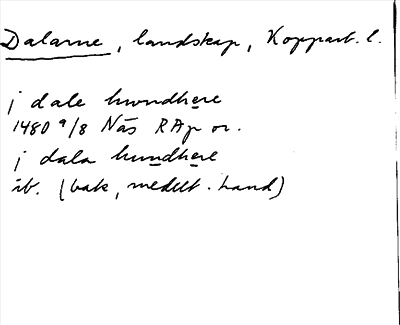 Dalarne, landskap, Kopparb. l.
j dale hwndhere
1480 9/8 Näs RAp or.
j dala hundhere
ib. (bak, medelt. hand)